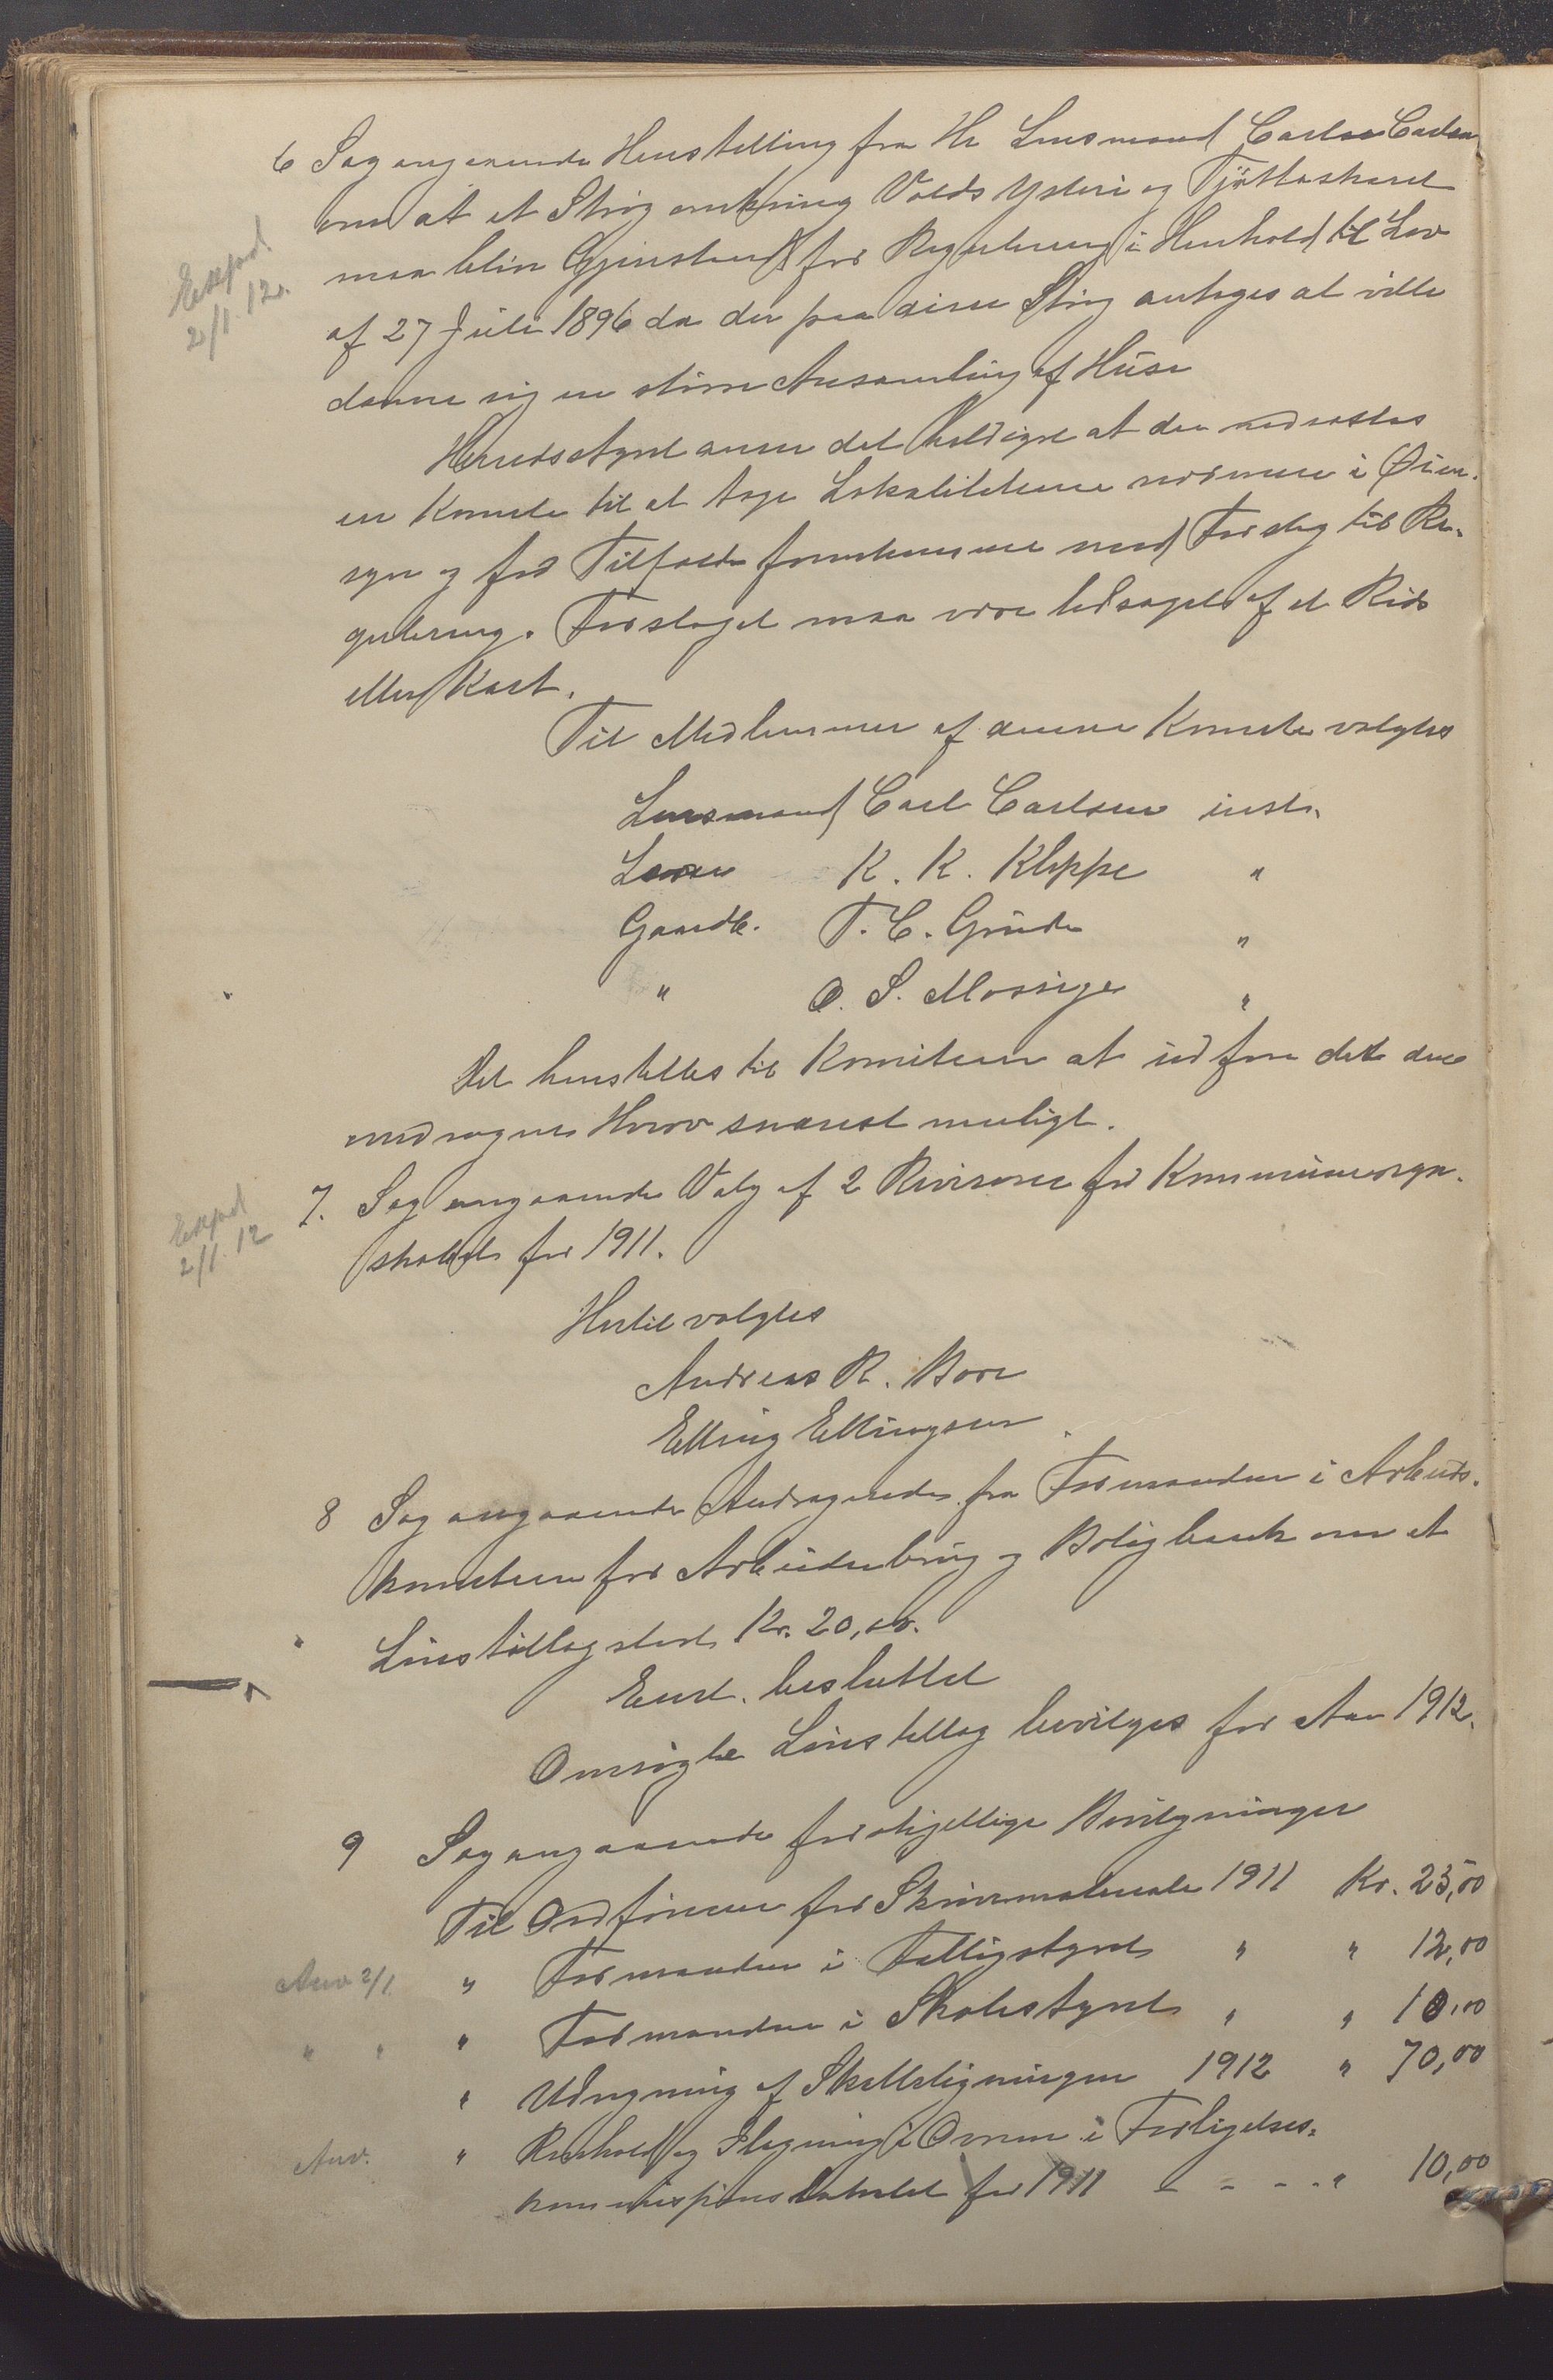 6 Sag angaaende Henstilling fra Hr Lensmand Carl Carlsen
om at et Strøg omkring Volds Ysteri og Tjøttaskaret
maa blive Gjenstand for Regulering i Henhold til Lov
Exped
2/1. 12.
af 27 Juli 1896 da der paa disse Strøg antages at ville
danne sig en større Ansamling af Huse
Herredsstyret anser det heldigst at der nedsættes
en Komite til at tage Lokaliteterne nærmere i Øien-
syn og for Tilfælde fremkomme med Forslag til Re-
gulering. Forslaget maa være ledsaget af et Rids
eller Kart.
Til Medlemmer af denne Komite valgtes
Lensmand Carl Carlsen enst.
K. K. Kleppe "
Gaardb. T. C. Grude "
" O. S. Mossige "
Det henstilles til Komiteen at udføre dette den
meddragne Hverv snarest muligt.
7. Sag angaaende Valg af 2 Revisorer for Kommuneregn-
Exped
2/1. 12
skabet for 1911.
Hertil valgtes
Andreas R. Bore
Elling Ellingsen.
8 Sag angaaende Andragende fra Formanden i Arbeids-
komiteen for Arbeiderbrug og Boligbank om et
Lønstillæg stort Kr. 20,00.
Enst. besluttet
Omsøgte Lønstillæg bevilges for Aar 1912.
9 Sag angaaende forskjellige Bevilgninger
Til Ordføreren for Skrivematerialer 1911 Kr. 25,00
Anv 2/1 " Formanden i Fattigstyret " " 12,00
" " " Formanden i Skolestyret " " 10,00
" Udregning af Skatteligningen 1912 " 70,00
Anv. " Renhold og Ilægning i Ovnen i Forligelses-
kommissionslokalet for 1911 - - - - " 10,00